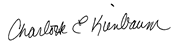 Charlotte E Kienbaum